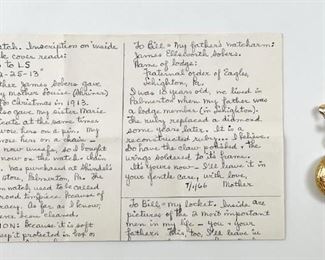 atch. Inscription on inside
k cover reads:
to LS
2-25-13"
ther James Sobers gave
y mother Louise (Ahriner)
for Christmas in 1913.
also gave my sister Marie
licate at the same time
wore hers on a pin. My
wore hers on a chain -
now unsafe, so I bought
now on the watch. Chain
was purchased at
Store, Palmerton, Pa. The
n watch used to be a
good timepiece because of
racy. As far as I know,
ever been cleaned.
ION: because it is soft
keep it protected in
To Bill = My father's watcharm:
James Ellsworth Sobers.
Name of lodge:
Fraternal order of Eagles,
Lehighton, Pa.
I was 18 years old, we lived in
Palmerton when my father was
a lodge member (in Lehighton).
The ruby replaced a diamond
some years later. It is a
reconstructed ruby... I believe.
Do have the claw polished & the
wings soldered to its frame.
It's yours now - I'll leave it in
your gentle care, with love,
9/1/66 Mother
To Bill = my locket. Inside are
pictures of the 2 most important
men in my life - you & your
father. This, too, I'll leave in